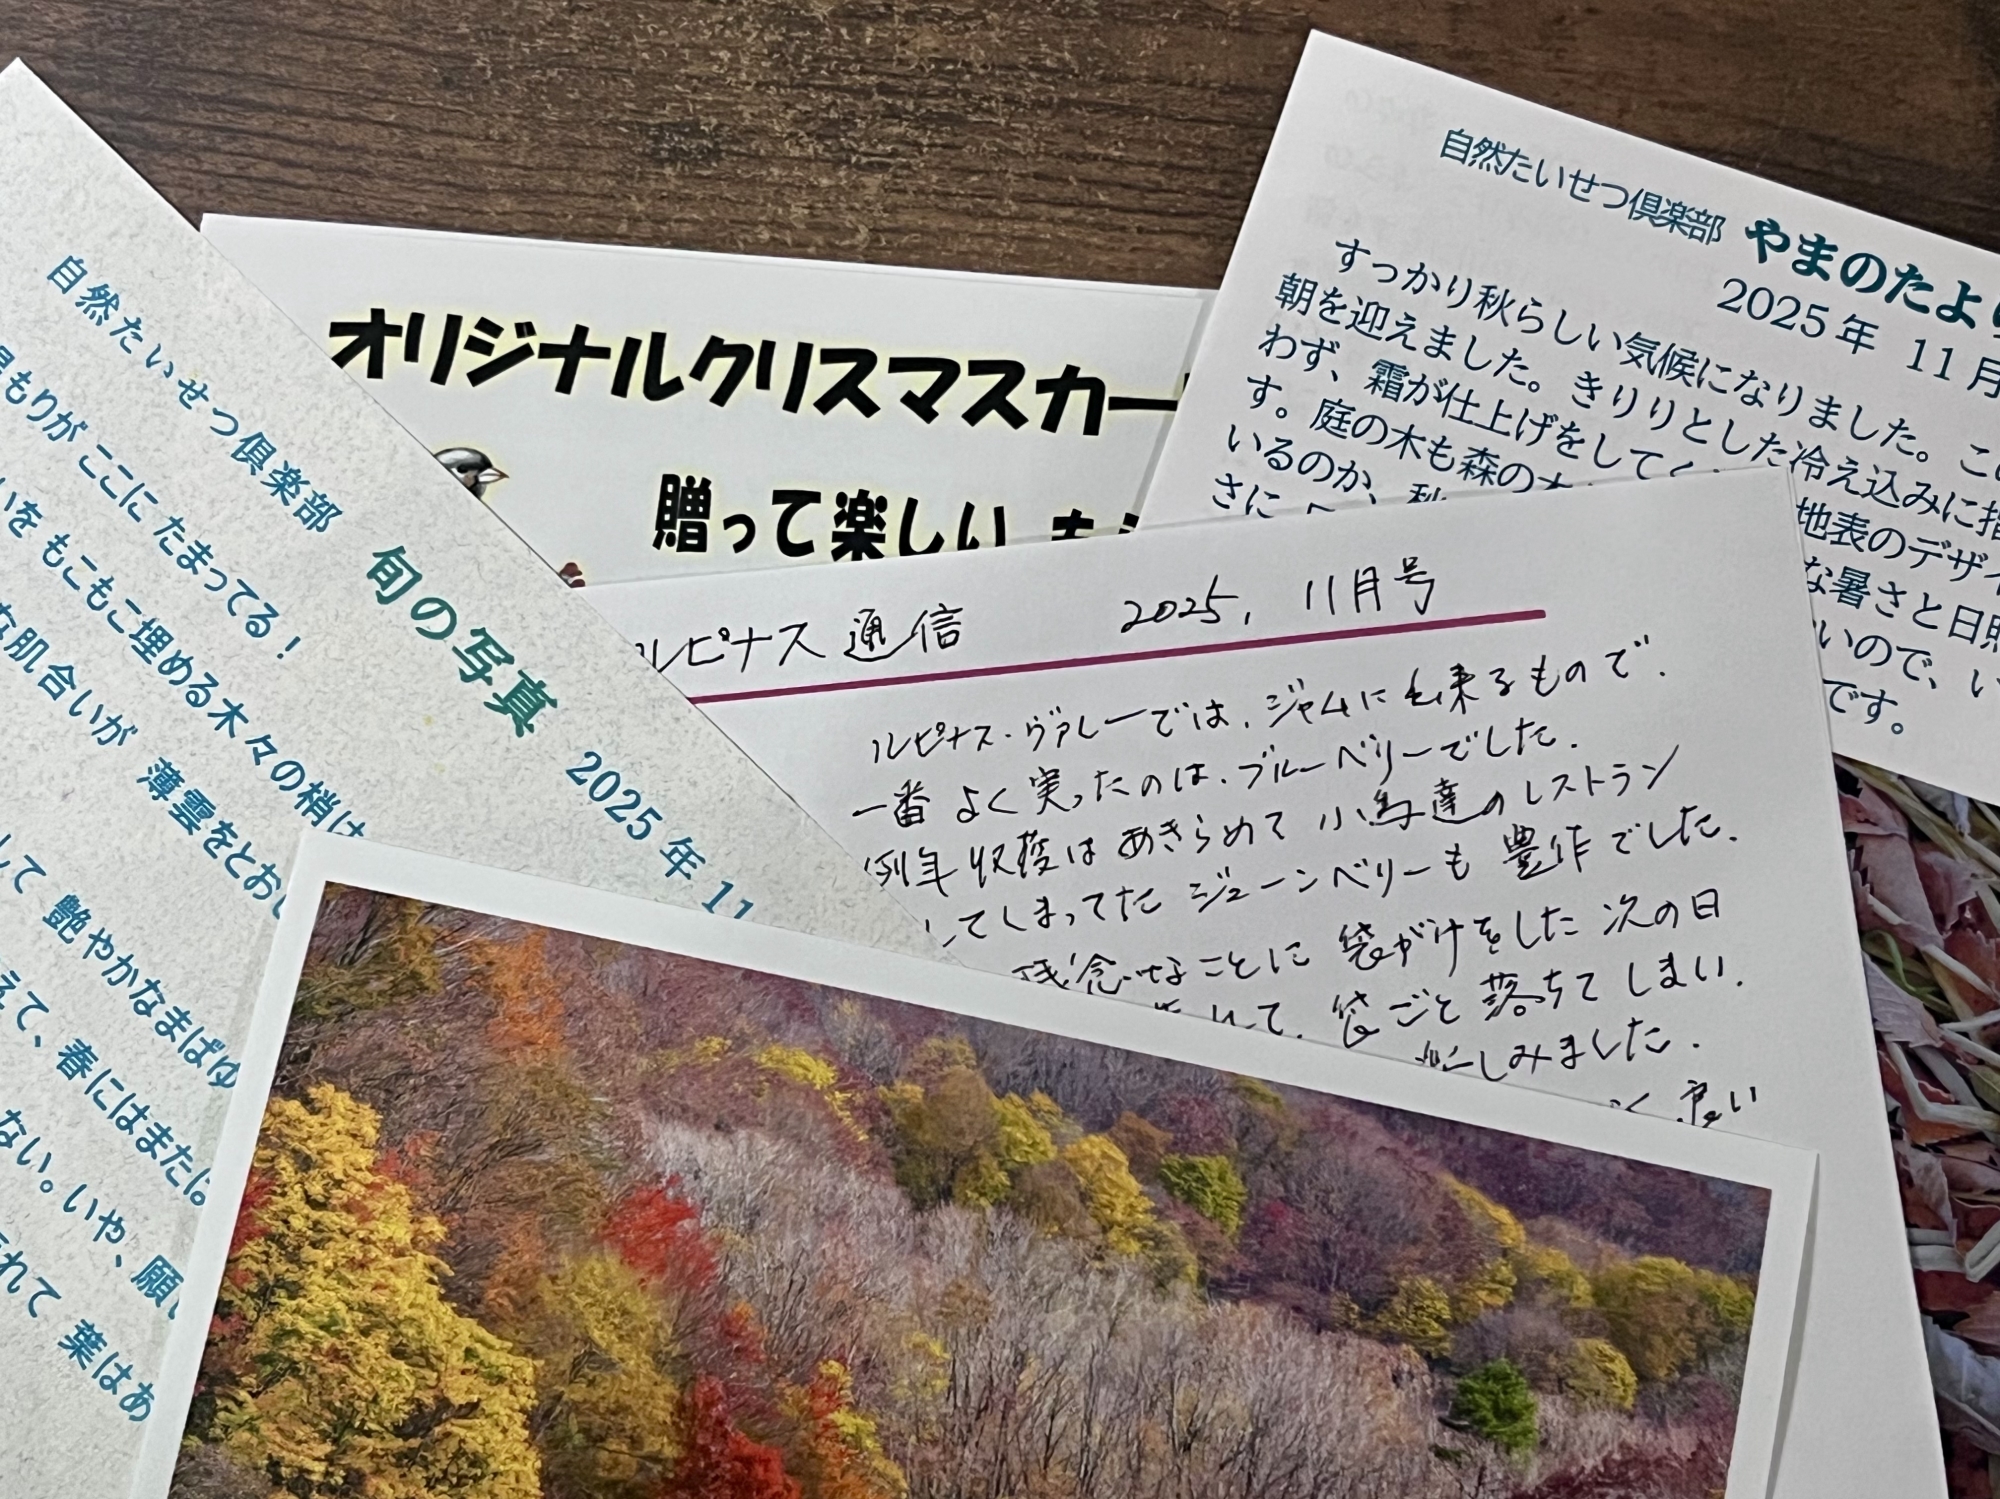 自然たいせつ倶楽部 旬の写真 2025年 11
もりが ここに たまってる！
いを もこもこ埋める木々の梢は
な肌合いが 薄雲をとお
して 艶やかなまばゆ
えて、春にはまたは
ない。いや、願い
れて 葉はあ
オリジナルクリスマスカー
贈って楽しい も
自然たいせつ倶楽部 やまのたより
2025年 11月
すっかり秋らしい気候になりました。こ
朝を迎えました。きりりとした冷え込みに指
わず、霜が仕上げをしてく 地表のデザイ
す。庭の木も森の木 な暑さと日照
いるのか、秋 いので、い
さに です。
ルピナス通信 2025, 11月号
ルピナス・ヴァレーでは、ジャムに出来るもので、
一番よく実ったのは、ブルーベリーでした。
例年収穫はあきらめて小鳥達のレストラン
してしまってた ジューンベリーも 豊作でした。
残念なことに 袋がけをした 次の日
して、袋ごと 落ちて しまい、
しみました。
く 良い